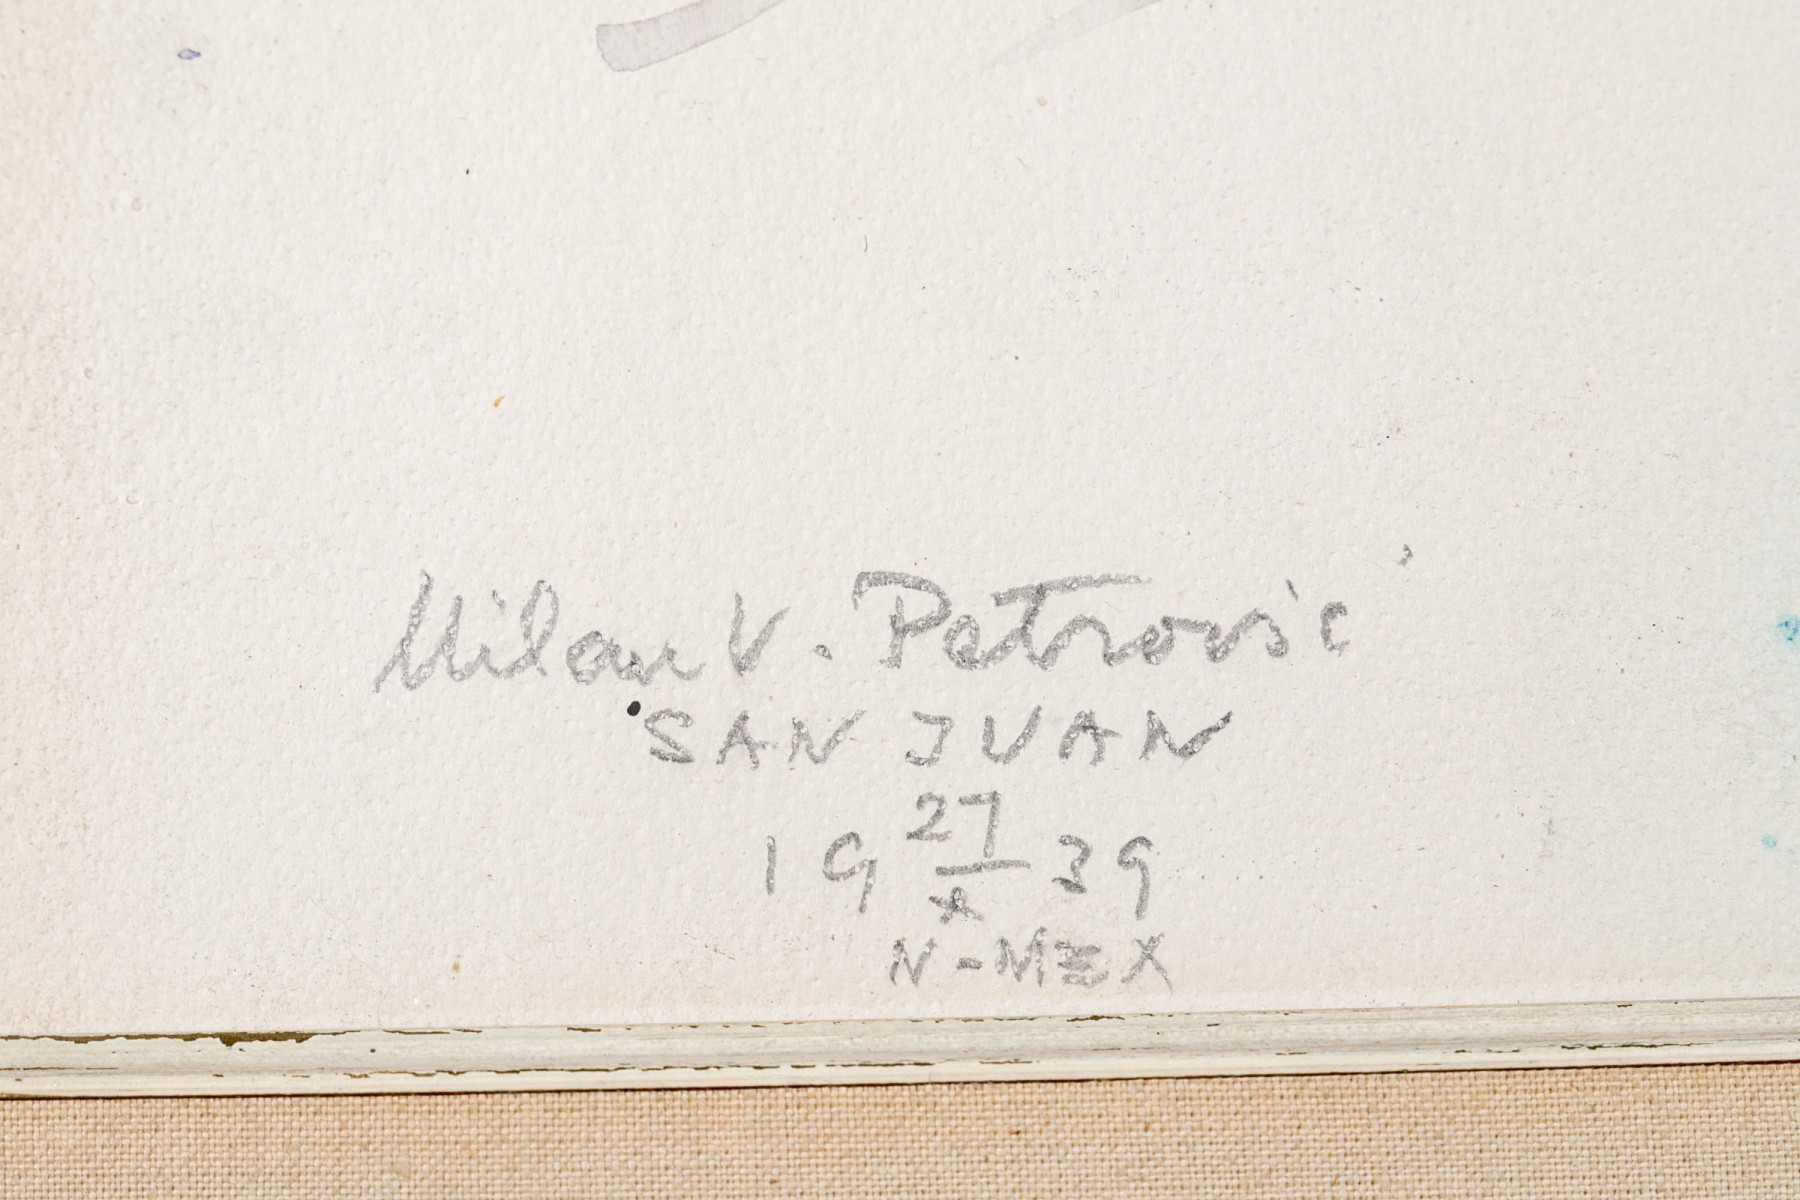 Milan V. Petrović
SAN JUAN
19 27/X 39
N-MEX